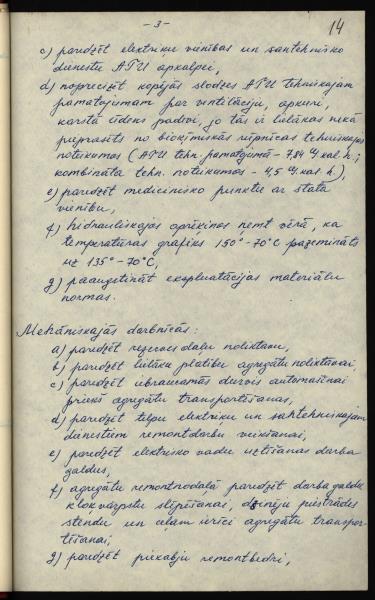 - 3 -
14
c) paredzēt elektriķu vienības un santehnisko
dienestu ATU apkalpei,
d) noprecizēt kopējās slodzes ATU tehniskajam
pamatojumam par ventilāciju, apkuri,
karstā ūdens padevi, jo tās ir lielākas nekā
pieprasīts no bioķīmiskās rūpnīcas tehniskajos
noteikumos (ATU tehn. pamatojumā - 7,84 kal. h.;
kombināta tehn. noteikumos - 4,5 kal. h),
e) paredzēt medicīnisko punktu ar štata
vienību,
f) hidrauliskajos aprēķinos ņemt vērā, ka
temperatūras grafiks 150° - 70°C pazemināts
uz 135° - 70°C,
g) paaugstināt ekspluatācijas materiālu
normas.
Mehāniskajās darbnīcās:
a) paredzēt rezerves daļu noliktavu,
b) paredzēt lielāku platību agregātu noliktavai,
c) paredzēt iebraucamās durvis automašīnai
priekš agregātu transportēšanas,
d) paredzēt telpu elektriķu un santehniskajam
dienestiem remontdarbu veikšanai,
e) paredzēt elektrisko vadu uztīšanas darba
galdus,
f) agregātu remontnodaļā paredzēt darba galdu
kloķvārpstu slīpēšanai, dzinēju piestrādes
stendu un ceļam ierīci agregātu transpor-
tēšanai,
g) paredzēt piekabju remontbedri,